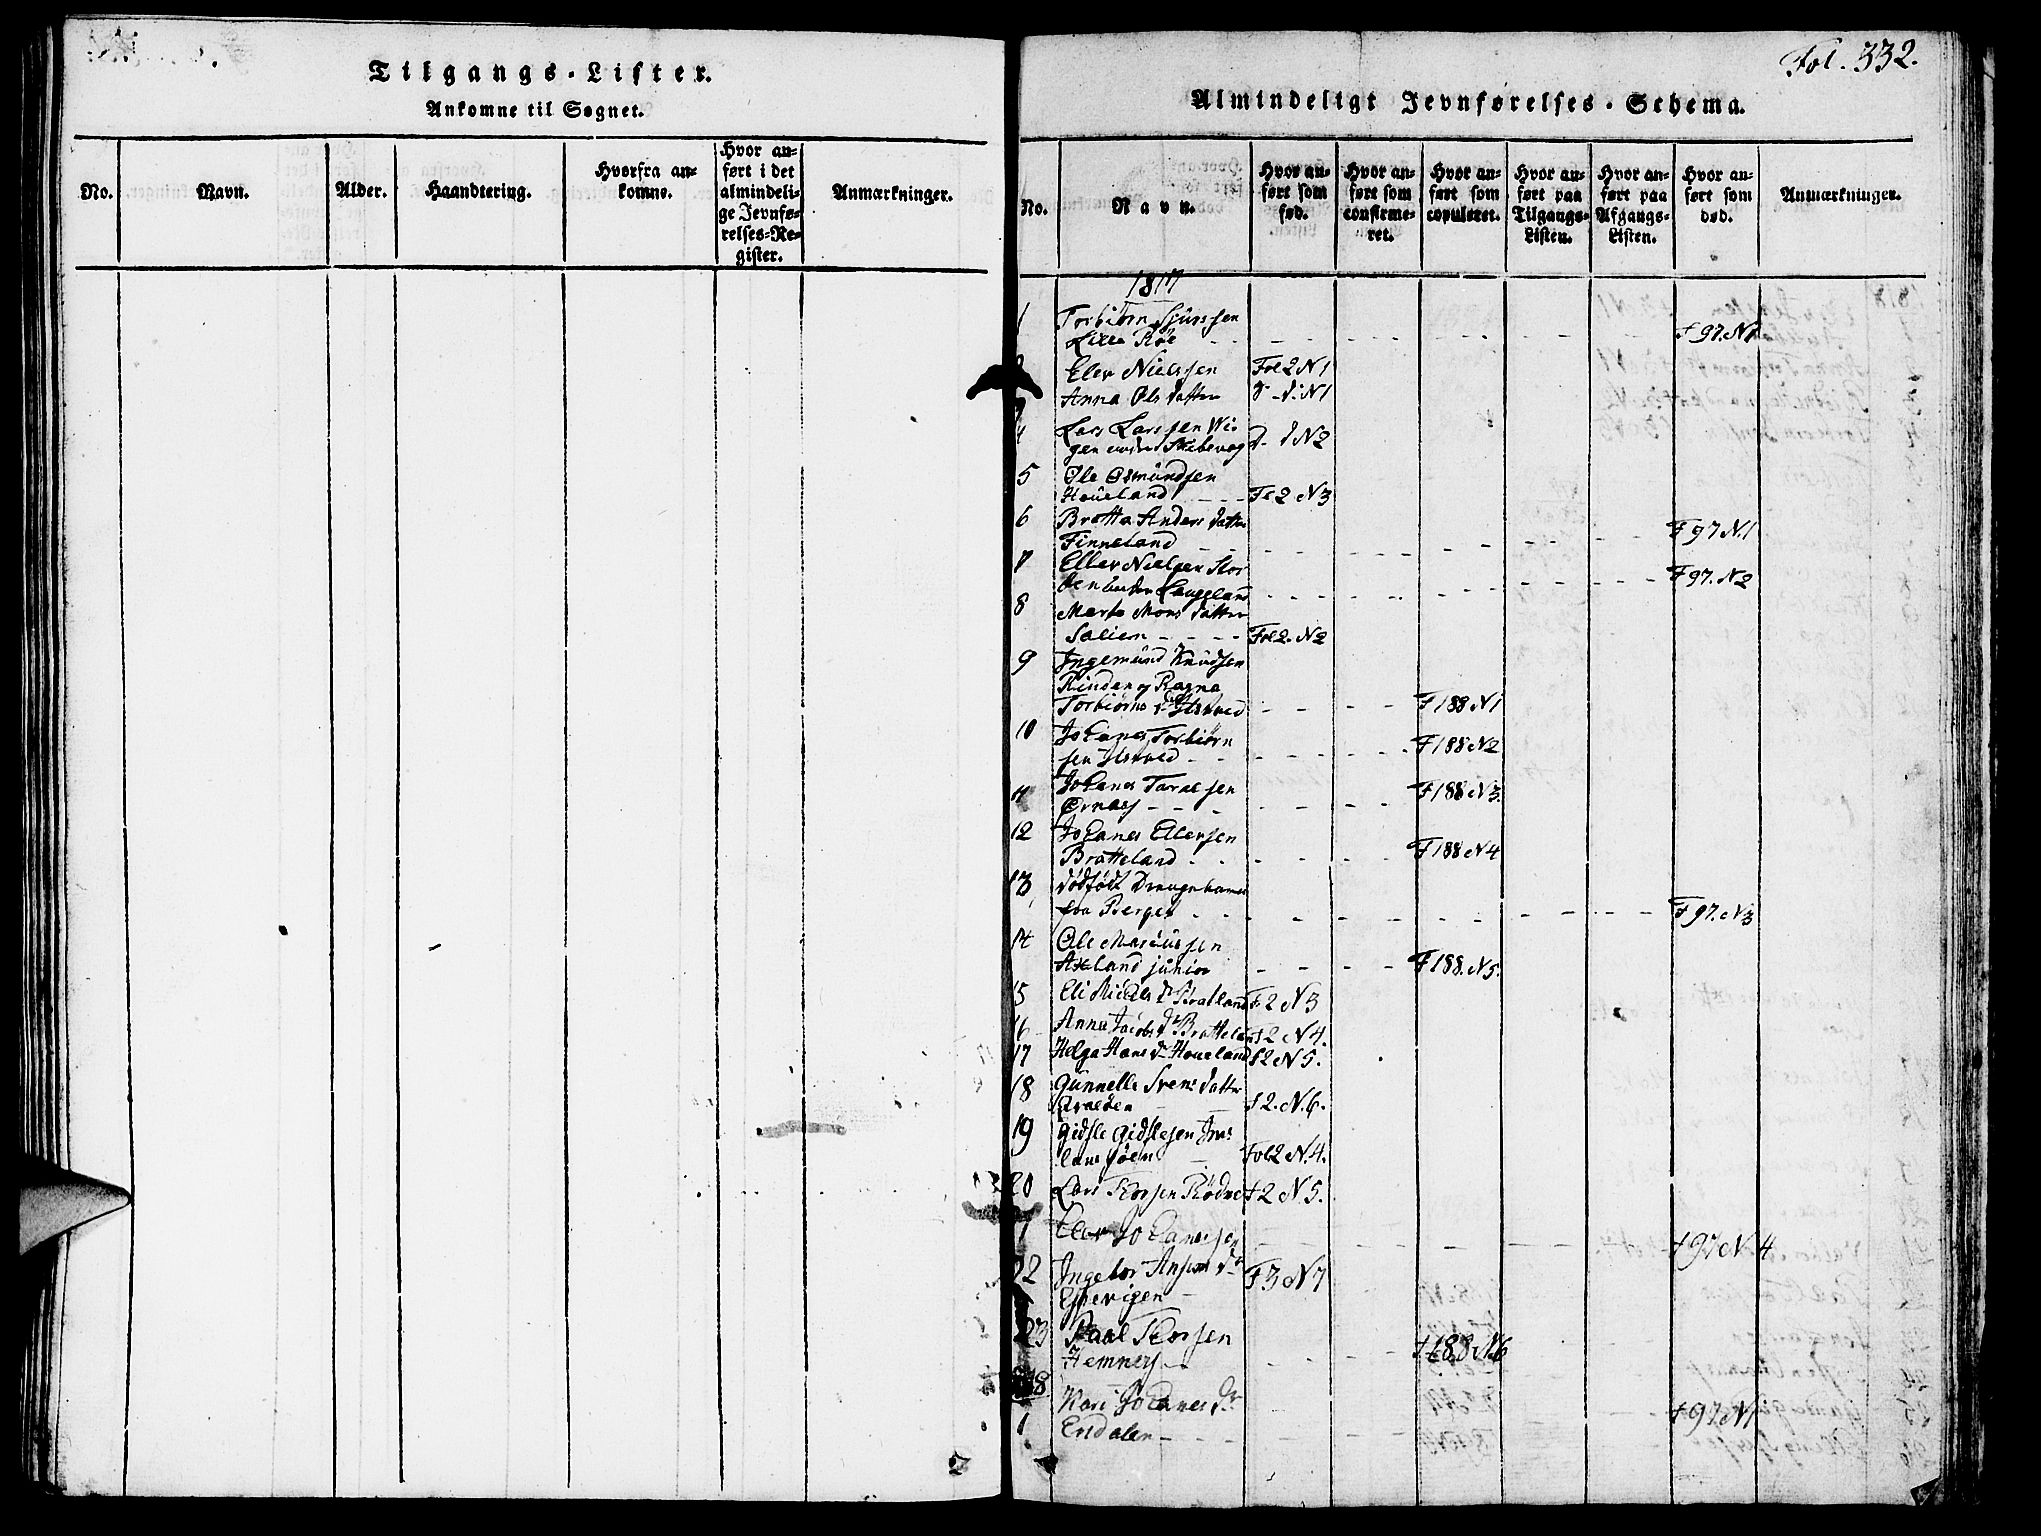 Tilgangs-Lister.
Ankomne til Sognet.
No.
Navn.
Alder.
Haandtering.
Hvorfra an-
komne.
Hvor an-
ført i det
almindeli-
ge Jevnfø-
relses-Re-
gister.
Anmærkninger.
Fol. 332.
Almindeligt Jevnførelses-Schema.
No.
Navn.
Hvor an-
ført som
fød.
Hvor an-
ført som
confirme-
ret.
Hvor an-
ført som
copuleret.
Hvor an-
ført paa
Tilgangs-
Listen.
Hvor an-
ført paa
Afgangs-
Listen.
Hvor an-
ført som
død.
Anmærkninger.
1817
1 Torbiörn Sjurssen
Lille Röe - - - f 97. N 1
Eler Nielssen Fol 2 N 1
Anna Ols datter d - d: N 1
4 Lars Larssen Wi-
gen under d - d N 2
5 Ole Osmundsen
Houeland - - - Fo 2 N 3
6 Britta Anders datter
Finneland - - - F 97 N. 1
7 Eller Nielsen Stor
- - - F 97. N 2
8 Marta Mons datter
Salien - - - Fol 2. N 2
9 Ingemund Knudsen
Rinden og Ragna
Torbiörns dr - - - F 188 N 1
10 Johanes Torbiörn
sen - - - F 188 N 2
11 Johanes
- - - F 188 N 3.
12 Johanes Ellersen
Bratteland - - - F 188 N 4
13 dødfödt Drengebarn
fra Berge - - - F 97. N 3
14 Ole
Axland junior - - - F 188. N 5.
15 Eli dr Bratland F. 2 N 3
16 Anna Jacobs dr Brattelan f 2 N 4.
17 Helga Hans dr Houeland f 2 N 5.
18 Gunnelle Svens datter
f 2. N. 6.
19 Gidsle Gidslesen
Fol 2 N. 4.
20 Lars Thorsen Rödne f 2 N 5.
Eler Johanessen - - - f 97 N. 4
22 Ingebor dr
Espevigen - F 3 N 7
23 Paul Thorsen
- - - f 188 N 6
18
Kari Johanes dr
1 Endalen - - - f 97 N 1